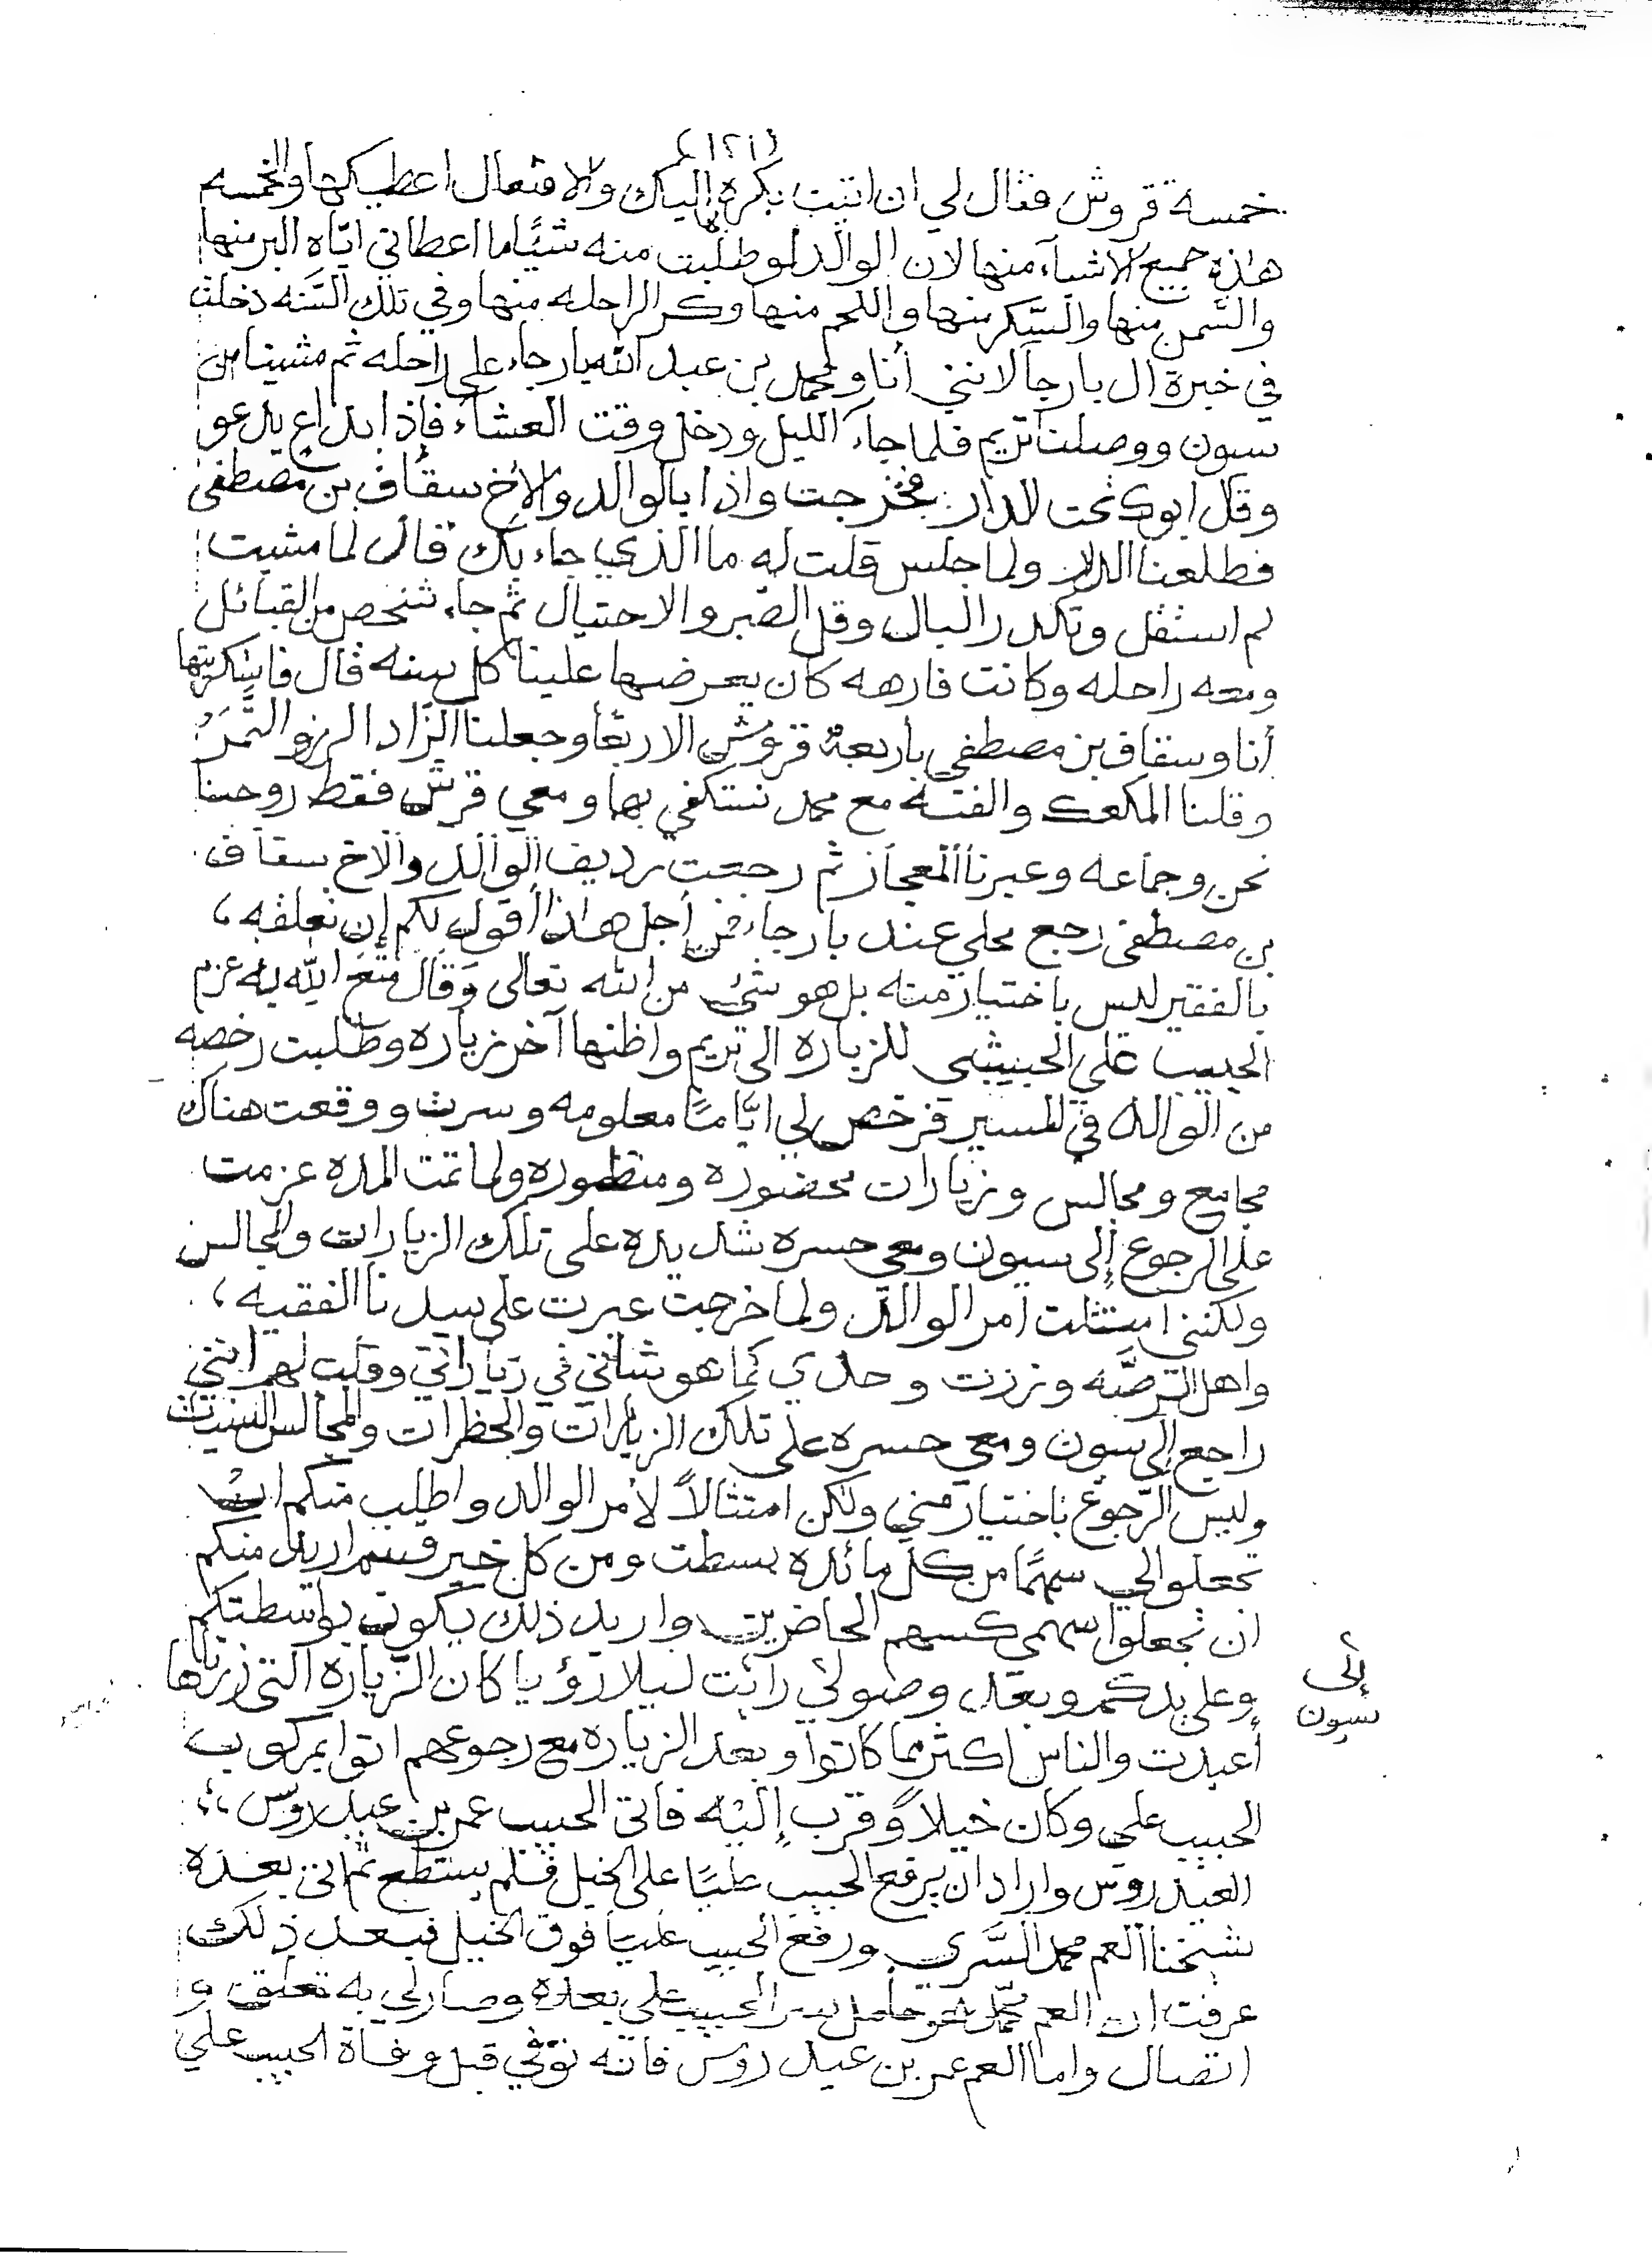 (١٢١)
خمسة قروش فقال لي ان اتيت بكره اليك والا فتعال اعطيكها والخمسه
هاذه جميع الاشياء منها لان الوالد لو طلبت منه شيئًا ما اعطاني ايّاه البر منها
والسّمن منها والسّكر منها واللحم منها وكر الراحله منها وفي تلك السّنه دخلت
في خبرة ال بارجا لانني أنا ومحمد بن عبد الله بارجاء على راحله ثم مشينا من
سيون ووصلت تريم فلما جاء الليل ودخل وقت العشاء فإذا بداع يدعو
وقال ابوك تحت الدار فخرجت واذا بالوالد والأخ سقاف بن مصطفى
فطلعنا الدار ولما جلس قلت له ما الذي جاء بك قال لما مشيت
لم استقل وتكدر البال وقل الصّبر والاحتيال ثم جاء شخص من القبائل
ومعه راحله وكانت فارهه كان يعرضها علينا كل سنه قال فاستكريتها
أنا وسقاف بن مصطفى باربعة قروش الا ربعًا وجعلنا الزّاد الرز والتّمر
وقلنا المكعك والفته مع محمد نستكفي بها ومعي قرش فقط روحنا
نحن وجماعه وعبرنا المعجاز ثم رجعت رديف الوالد والاخ سقاف
بن مصطفى رجع محلي عند بارجاء فمن أجل هاذا أقول لكم إن تعلقه
بالفقير ليس باختيار منه بل هو شئ من الله تعالى وقال متع الله به عزم
الحبيب علي الحبيشي للزياره الى تريم واظنها آخر زياره وطلبت رخصه
من الوالد في المسير فرخص لي ايّامًا معلومه وسرت ووقعت هناك
مجامع ومجالس وزيارات محضوره ومنظوره ولما تمت المده عزمت
على الرجوع إلى سيون ومعي حسره شديده على تلك الزيارات والمجالس
ولكنني امتثلت امر الوالد ولما خرجت عبرت على سيدنا الفقيه
واهل التربه وزرت وحدي كما هو شأني في زياراتي وقلت لهم انني
راجع إلى سيون ومعي حسره على تلك الزيارات والحظرات والمجالس السنيات
وليس الرّجوع باختيار مني ولكن امتثالاً لأمر الوالد واطلب منكم ان
تجعلوا لي سهمًا من كل مائده بسطت ومن كل خير قسم اريد منكم
ان تجعلوا سهمي كسهم الحاضرين واريد ذلك يكون بواسطتكم
وعلى يدكم وبعد وصولي رأيت ليلا رؤيا كان الزّياره التي زرناها
إلى
سيون
أعيدت والناس اكثر مما كانوا وبعد الزياره مع رجوعهم اتوا بمركوب
الحبيب علي وكان خيلاً وقرب إليه فاتى الحبيب عمر بن عيدروس
العيدروس واراد ان يرفع الحبيب عليًا على الخيل فلم يستطع ثم اتى بعده
شيخنا العم محمد السّري ورفع الحبيب عليًا فوق الخيل فبعد ذلك
عرفت ان العم محمّد هو حامل سر الحبيب علي بعده وصار لي به تعلق و
اتصال واما العم عمر بن عيدروس فانه توفي قبل وفاة الحبيب علي